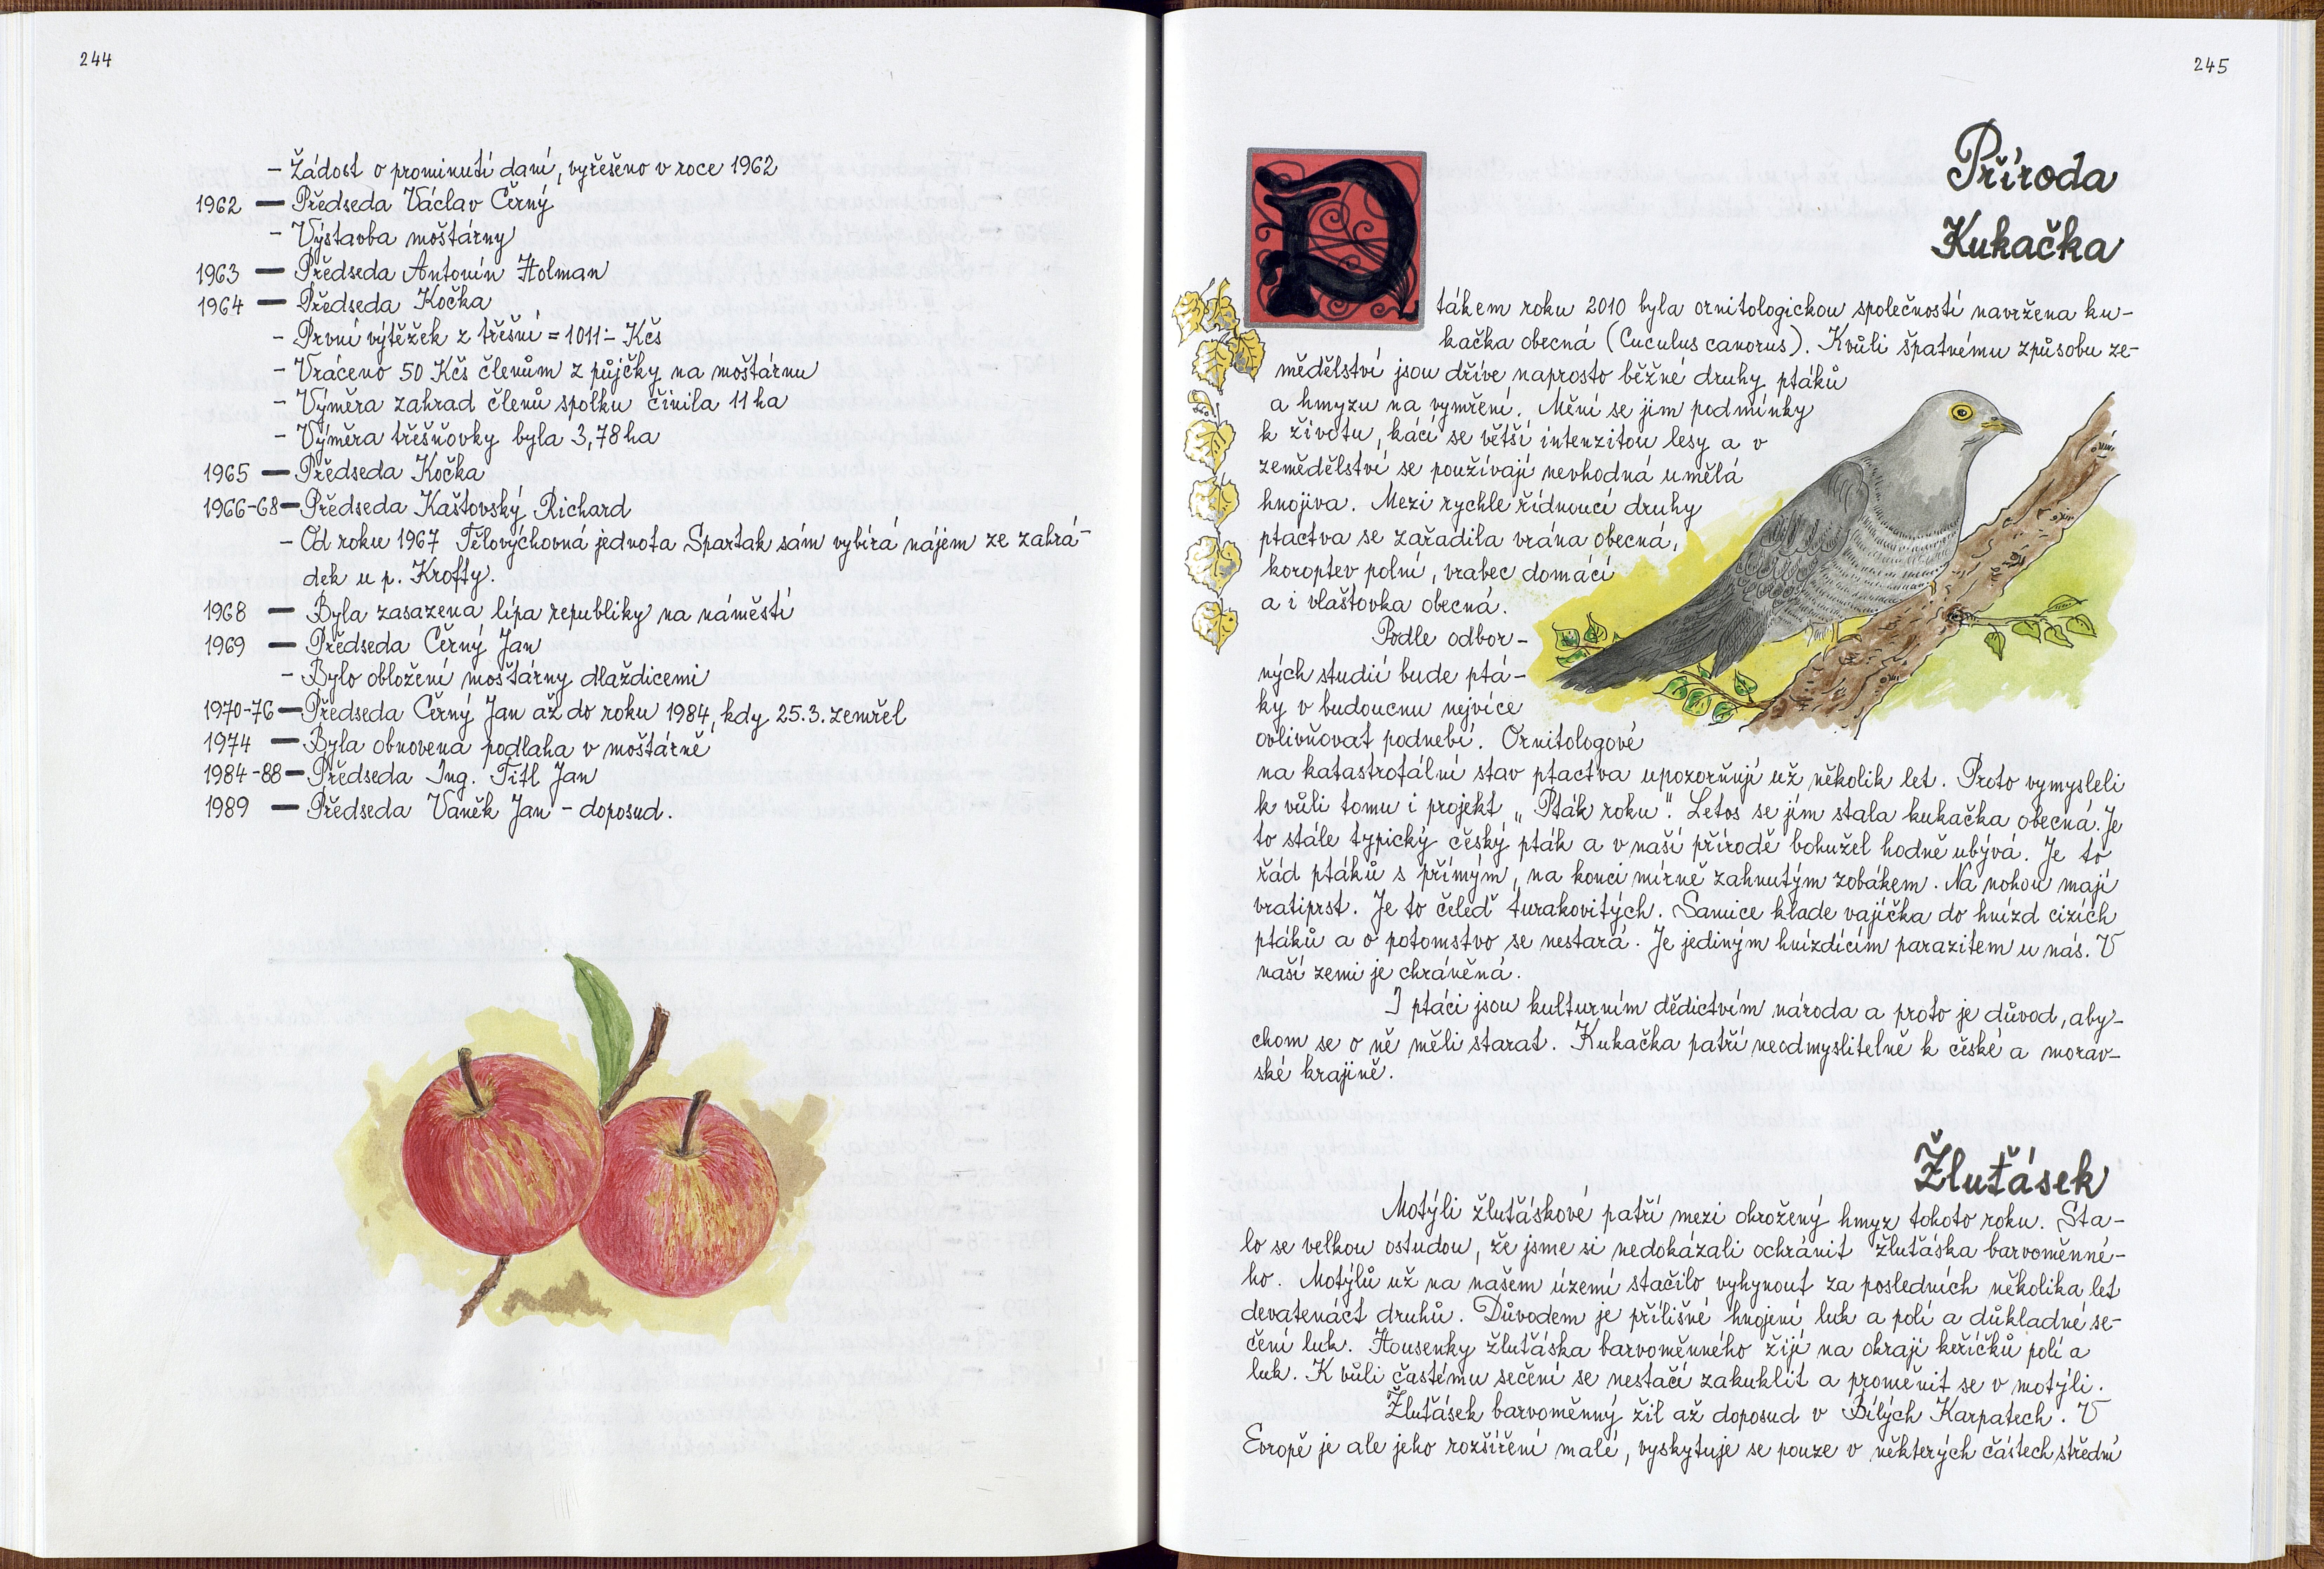 244
- Žádost o prominutí daní, vyřešeno v roce 1962
1962 — Předseda Václav Černý
- Výstavba moštárny
1963 — Předseda Antonín Holman
1964 — Předseda Kočka
- První výtěžek z třešní = 1011:- Kčs
- Vráceno 50 Kčs členům z půjčky na moštárnu
- Výměra zahrad členů spolku činila 11 ha
- Výměra třešňovky byla 3,78 ha
1965 — Předseda Kočka
1966-68 — Předseda Kaštovský Richard
- Od roku 1967 Tělovýchovná jednota Spartak sám vybírá nájem ze zahrá-
dek u p. Krofty.
1968 — Byla zasazena lípa republiky na náměstí
1969 — Předseda Černý Jan
- Bylo obložení moštárny dlaždicemi
1970-76 — Předseda Černý Jan až do roku 1984, kdy 25.3. zemřel
1974 — Byla obnovena podlaha v moštárně
1984-88 — Předseda Ing. Titl Jan
1989 — Předseda Vaněk Jan - doposud.
245
Příroda
Kukačka
Ptákem roku 2010 byla ornitologickou společností navržena ku-
kačka obecná (Cuculus canorus). Kvůli špatnému způsobu ze-
mědělství jsou dříve naprosto běžné druhy ptáků
a hmyzu na vymření. Mění se jim podmínky
k životu, kácí se větší intenzitou lesy a v
zemědělství se používají nevhodná umělá
hnojiva. Mezi rychle řídnoucí druhy
ptactva se zařadila vrána obecná,
koroptev polní, vrabec domácí
a i vlaštovka obecná.
Podle odbor-
ných studií bude ptá-
ky v budoucnu nejvíce
ovlivňovat podnebí. Ornitologové
na katastrofální stav ptactva upozorňují už několik let. Proto vymysleli
k vůli tomu i projekt „Pták roku". Letos se jím stala kukačka obecná. Je
to stále typický český pták a v naší přírodě bohužel hodně ubývá. Je to
řád ptáků s přímým, na konci mírně zahnutým zobákem. Na nohou mají
vratiprst. Je to čeleď turakovitých. Samice klade vajíčka do hnízd cizích
ptáků a o potomstvo se nestará. Je jediným hnízdícím parazitem u nás. V
naší zemi je chráněná.
I ptáci jsou kulturním dědictvím národa a proto je důvod, aby-
chom se o ně měli starat. Kukačka patří neodmyslitelně k české a morav-
ské krajině.
Žluťásek
Motýli žluťáskové patří mezi ohrožený hmyz tohoto roku. Sta-
lo se velkou ostudou, že jsme si nedokázali ochránit žluťáska barvoměnné-
ho. Motýlů už na našem území stačilo vyhynout za posledních několika let
devatenáct druhů. Důvodem je přílišné hnojení luk a polí a důkladné se-
čení luk. Housenky žluťáska barvoměnného žijí na okraji keříčků polí a
luk. K vůli častému sečení se nestačí zakuklit a proměnit se v motýli.
Žluťásek barvoměnný žil až doposud v Bílých Karpatech. V
Evropě je ale jeho rozšíření malé, vyskytuje se pouze v některých částech střední